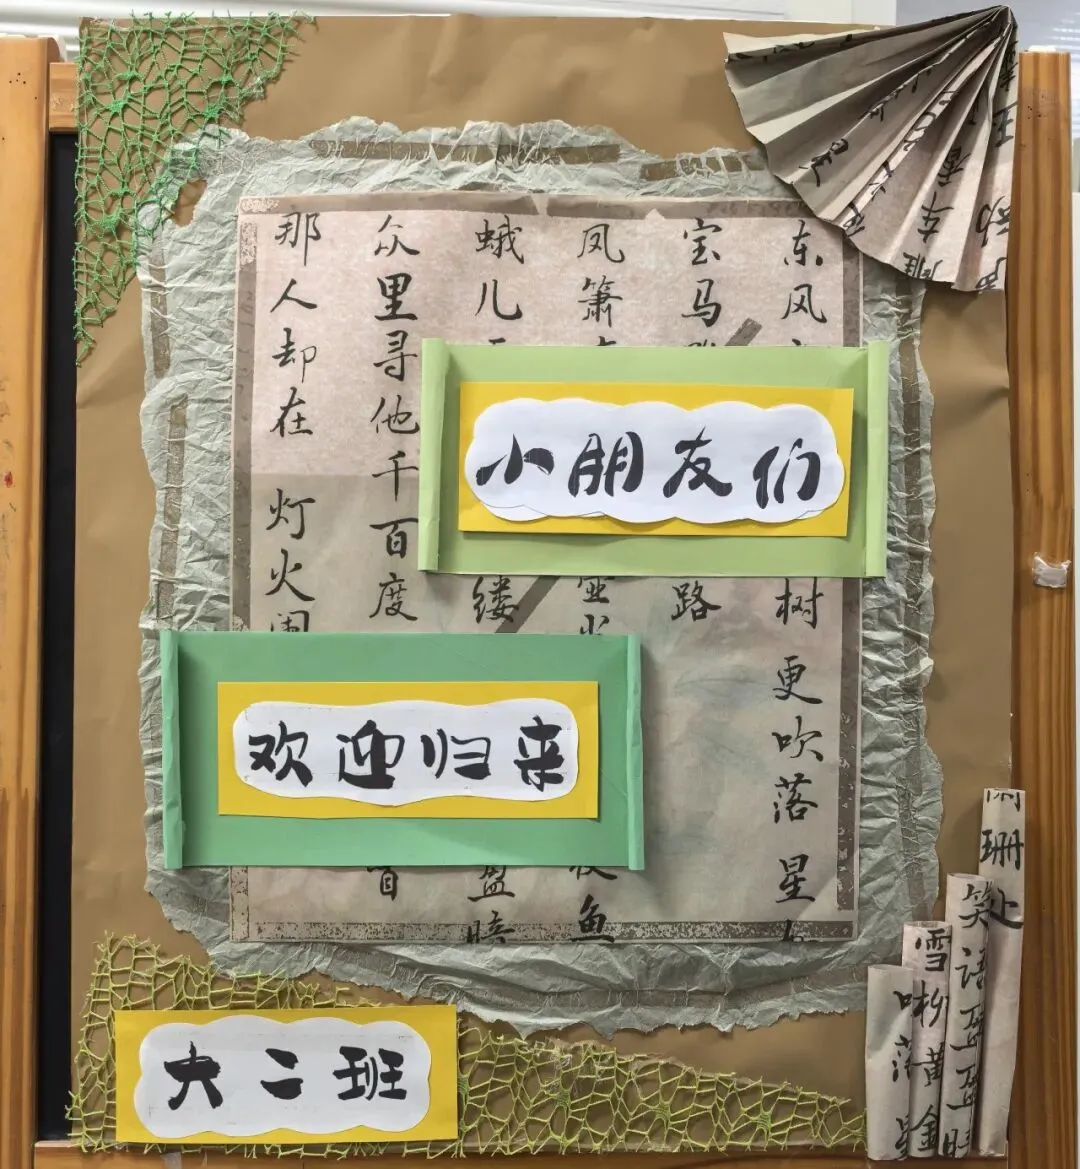 小朋友们
欢迎归来
大二班
东风
树 更吹落 星
宝马
路
凤箫
鱼
蛾儿
缕
盈暗
众里寻他千百度
首
那人却在 灯火阑
珊处
笑语盈盈暗
雪柳黄金
落星